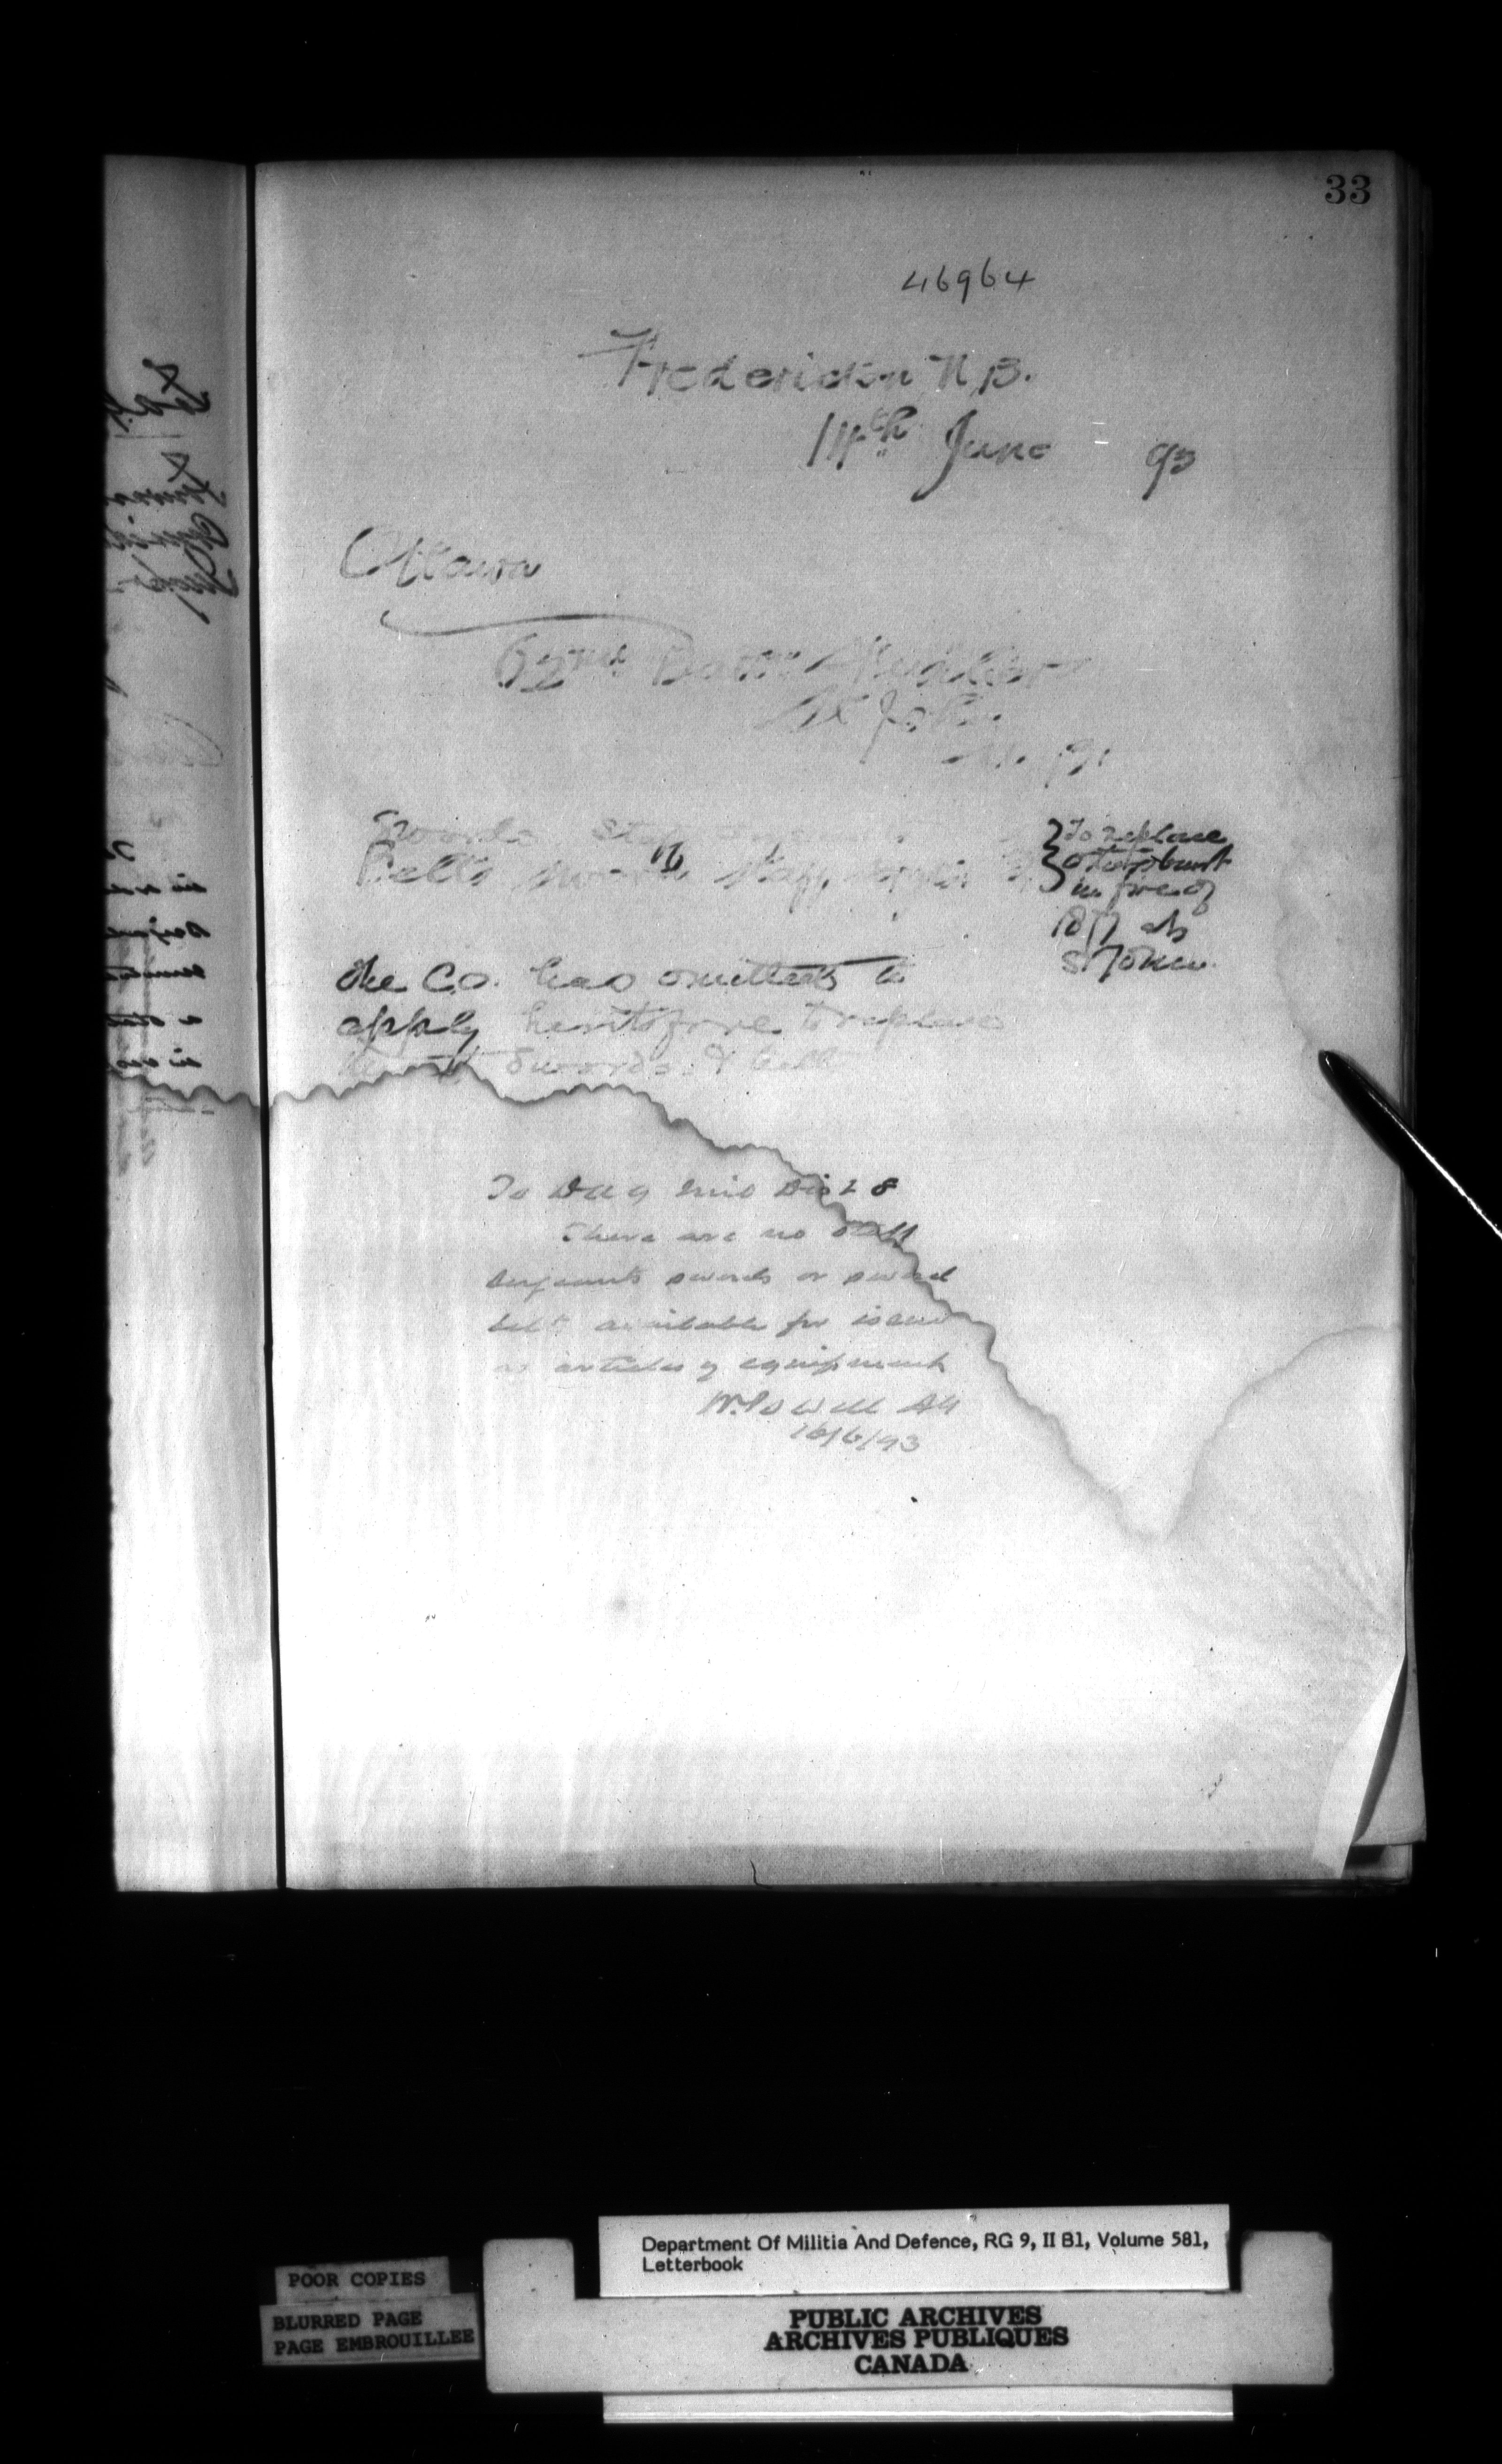 33
46964
Fredericton N.B.
14th June 93
Ottawa
62nd Battn
St John
N. B.
Swords Staff
Belts Sword Staff
To replace
burnt
in fire of
1877 at
St John
The C.O. has omitted to
apply heretofore to replace
burnt Swords &
To DAG Mil Dist 8
There are no Staff
Sergeants swords or sword
belts available for issue
as articles of equipment
W. Powell AG
16/6/93
Department Of Militia And Defence, RG 9, II B1, Volume 581,
Letterbook
POOR COPIES
BLURRED PAGE
PAGE EMBROUILLEE
PUBLIC ARCHIVES
ARCHIVES PUBLIQUES
CANADA